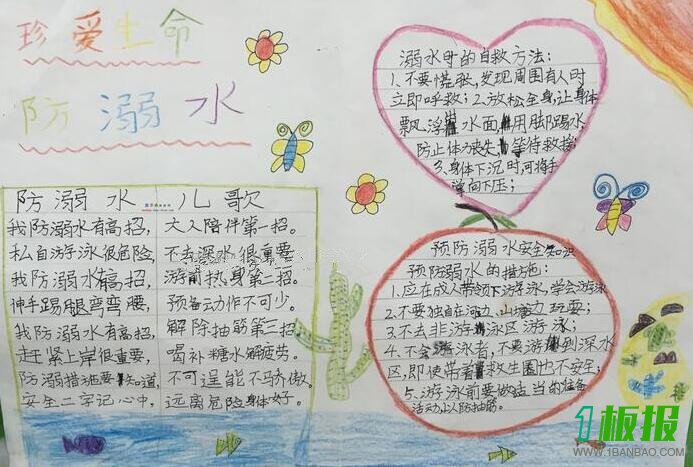 珍爱生命
防溺水
防溺水儿歌
我防溺水有高招, 大人陪伴第一招.
私自游泳很危险, 不去深水很重要
我防溺水有高招, 游前热身第二招.
伸手踢腿弯弯腰, 预备动作不可少.
我防溺水有高招, 解除抽筋第三招
赶紧上岸很重要, 喝补糖水解疲劳.
防溺措施要知道, 不可逞能不骄傲.
安全二字记心中, 远离危险身体好.
溺水时的自救方法:
1、不要慌张,发现周围有人时
立即呼救; 2、放松全身,让身体
飘浮 水面, 用脚踢水,
防止体力丧失, 等待救援;
3、身体下沉时可将手
掌向下压;
预防溺水安全知识
预防溺水的措施:
1、应在成人带领下游泳,学会游泳
2、不要独自在河边、山 边玩耍;
3、不去非游泳区游泳;
4、不会 泳者,不要游到深水
区,即使带着救生圈也不安全;
5、游泳前要做适当的准备
活动,以防抽筋。
1板报
WWW.1BANBAO.COM